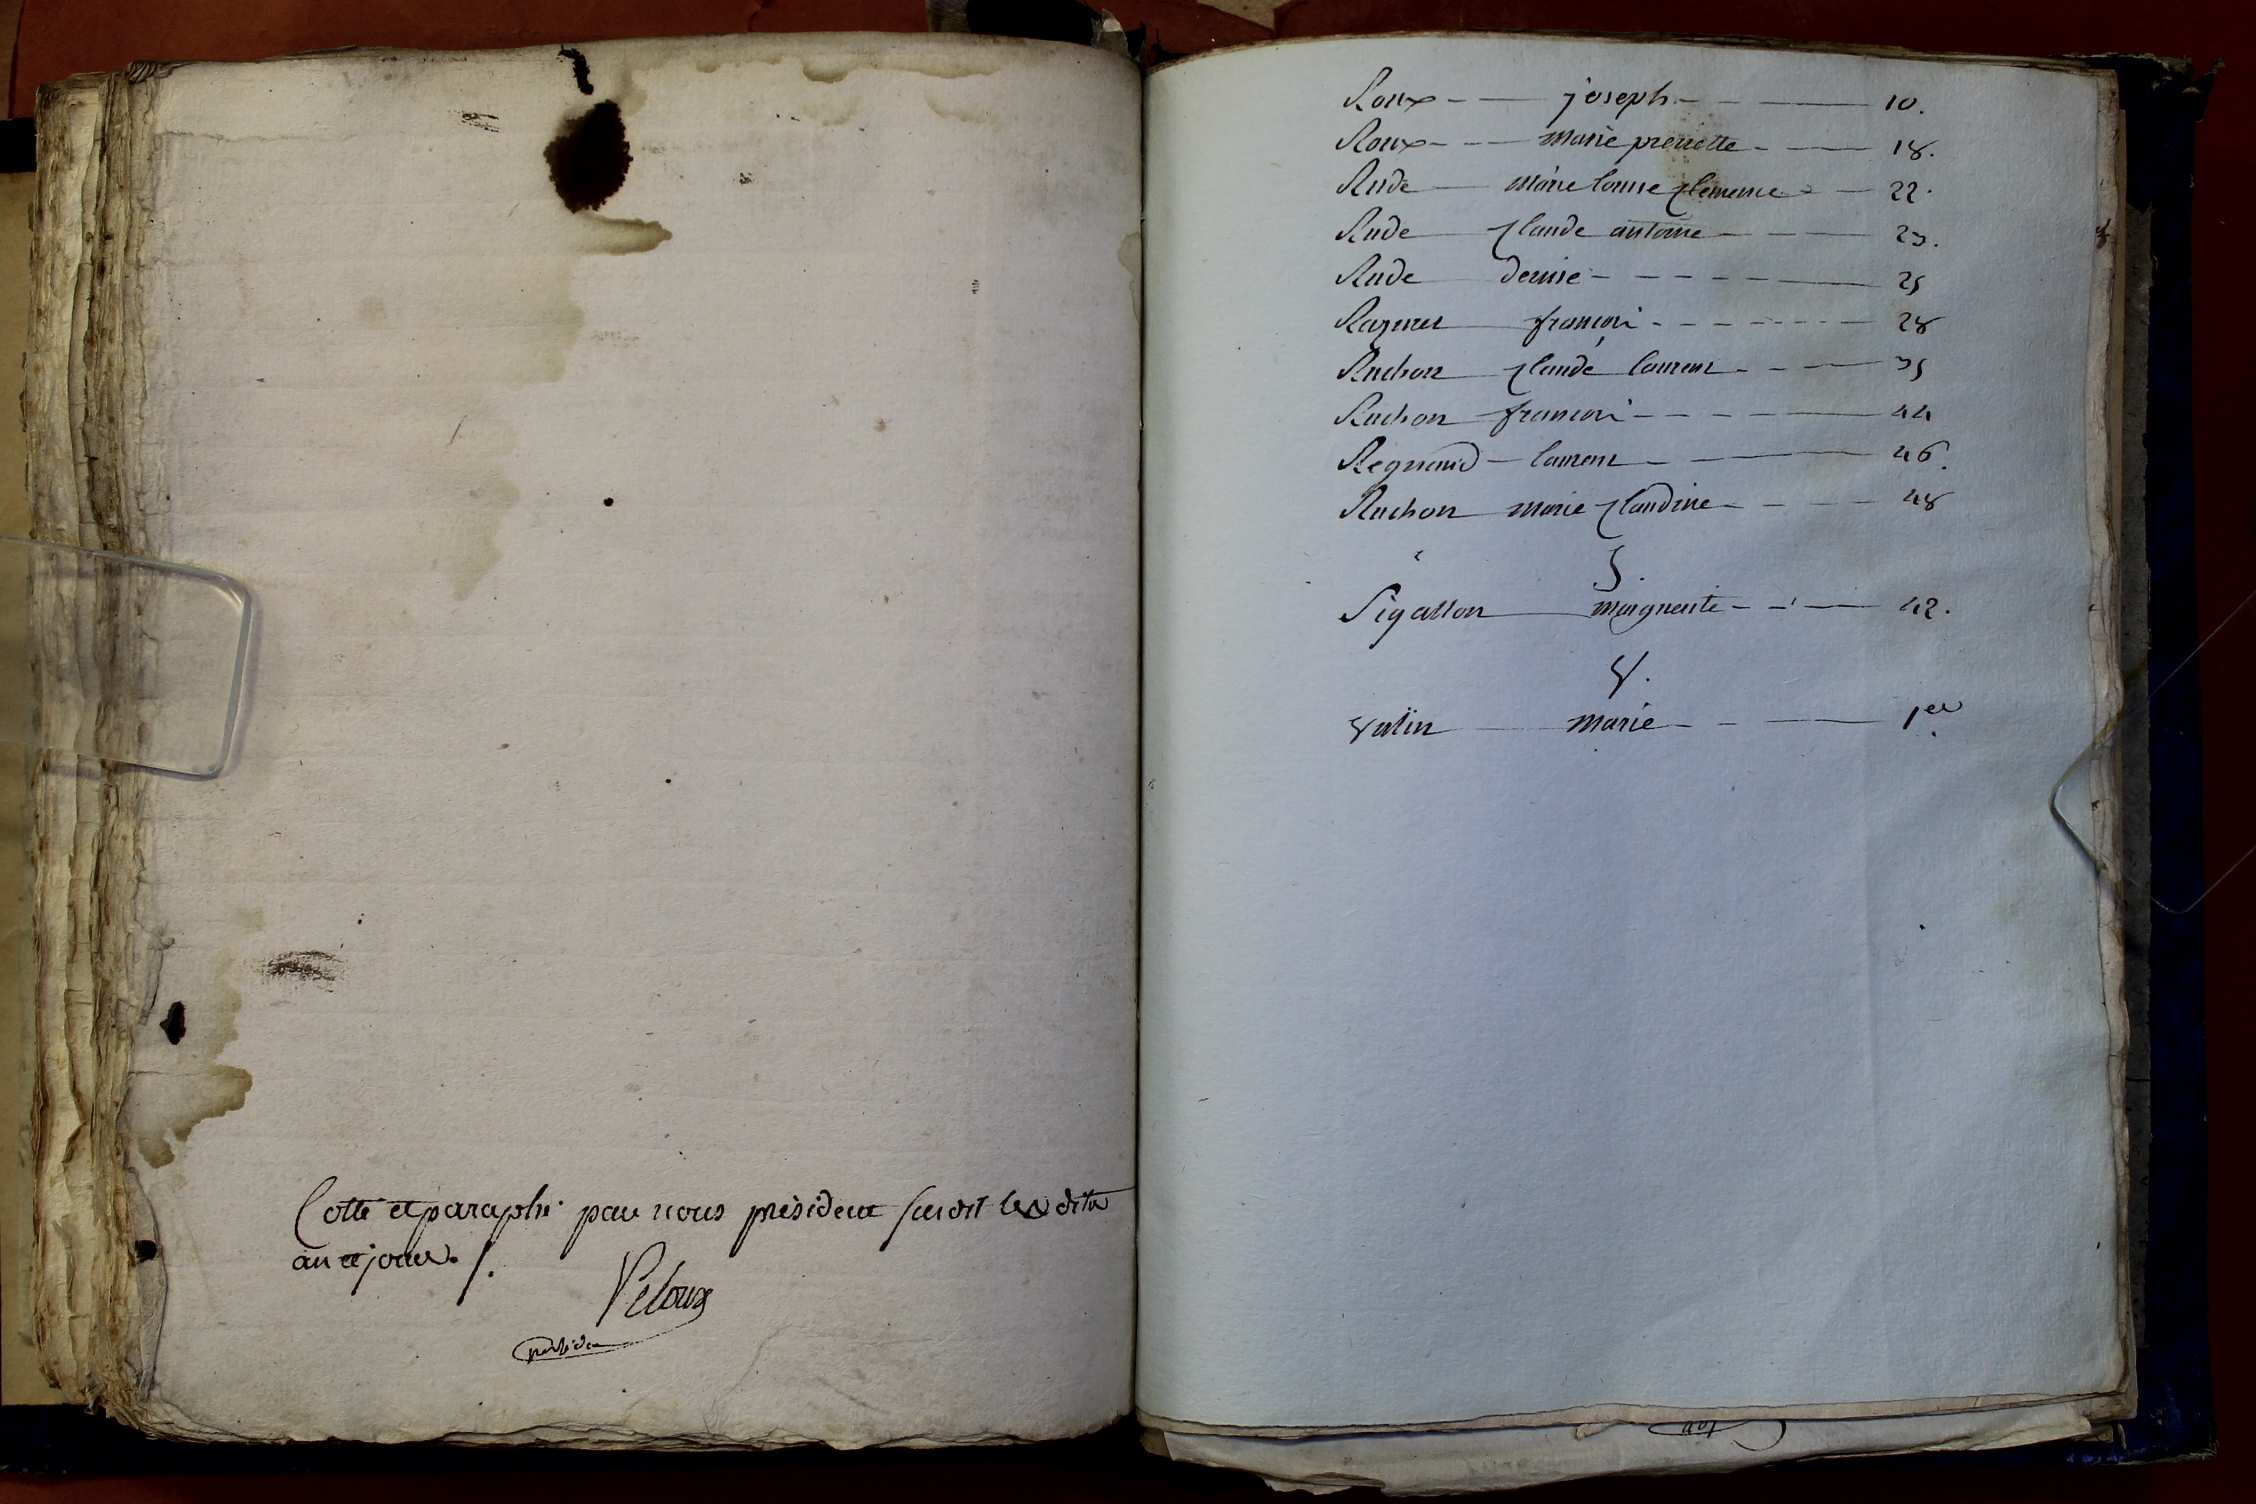 Cotté et paraphé par nous président susdit lesdits
an et jour ./.
Peloux
président
Roux - - joseph - - 10.
Roux - - - marie pierrette - - 18.
Rude - marie louise clemence - - 22.
Rude claude antoine - - - - 23.
Rude denise - - - - - - 25
Raymet françois - - - - - - 28
Ruchon claude laurent - - - 35
Ruchon françois - - - - 44
Regnaud - laurent - - 46.
Ruchon marie claudine - - - 48
S.
Sigallon marguerite - - - 42.
V.
vulin marie - - - 1er